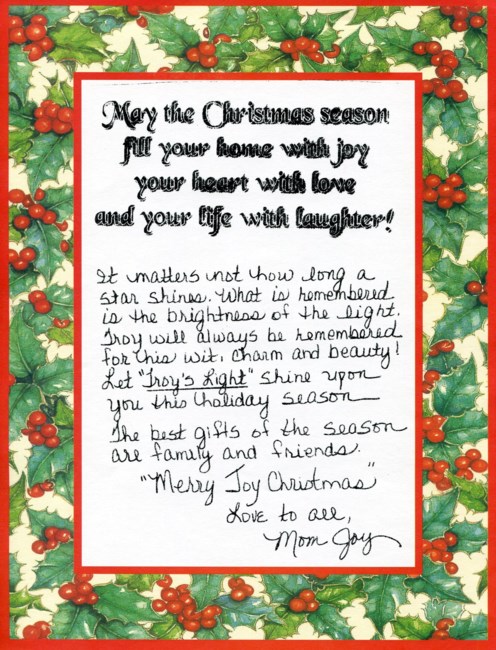 May the Christmas season
fill your home with joy
your heart with love
and your life with laughter!
It matters not how long a
star shines. What is remembered
is the brightness of the light.
Troy will always be remembered
for his wit, charm and beauty!
Let "Troy's Light" shine upon
you this holiday season
The best gifts of the season
are family and friends.
"Merry Joy Christmas"
Love to all,
Mom Joy